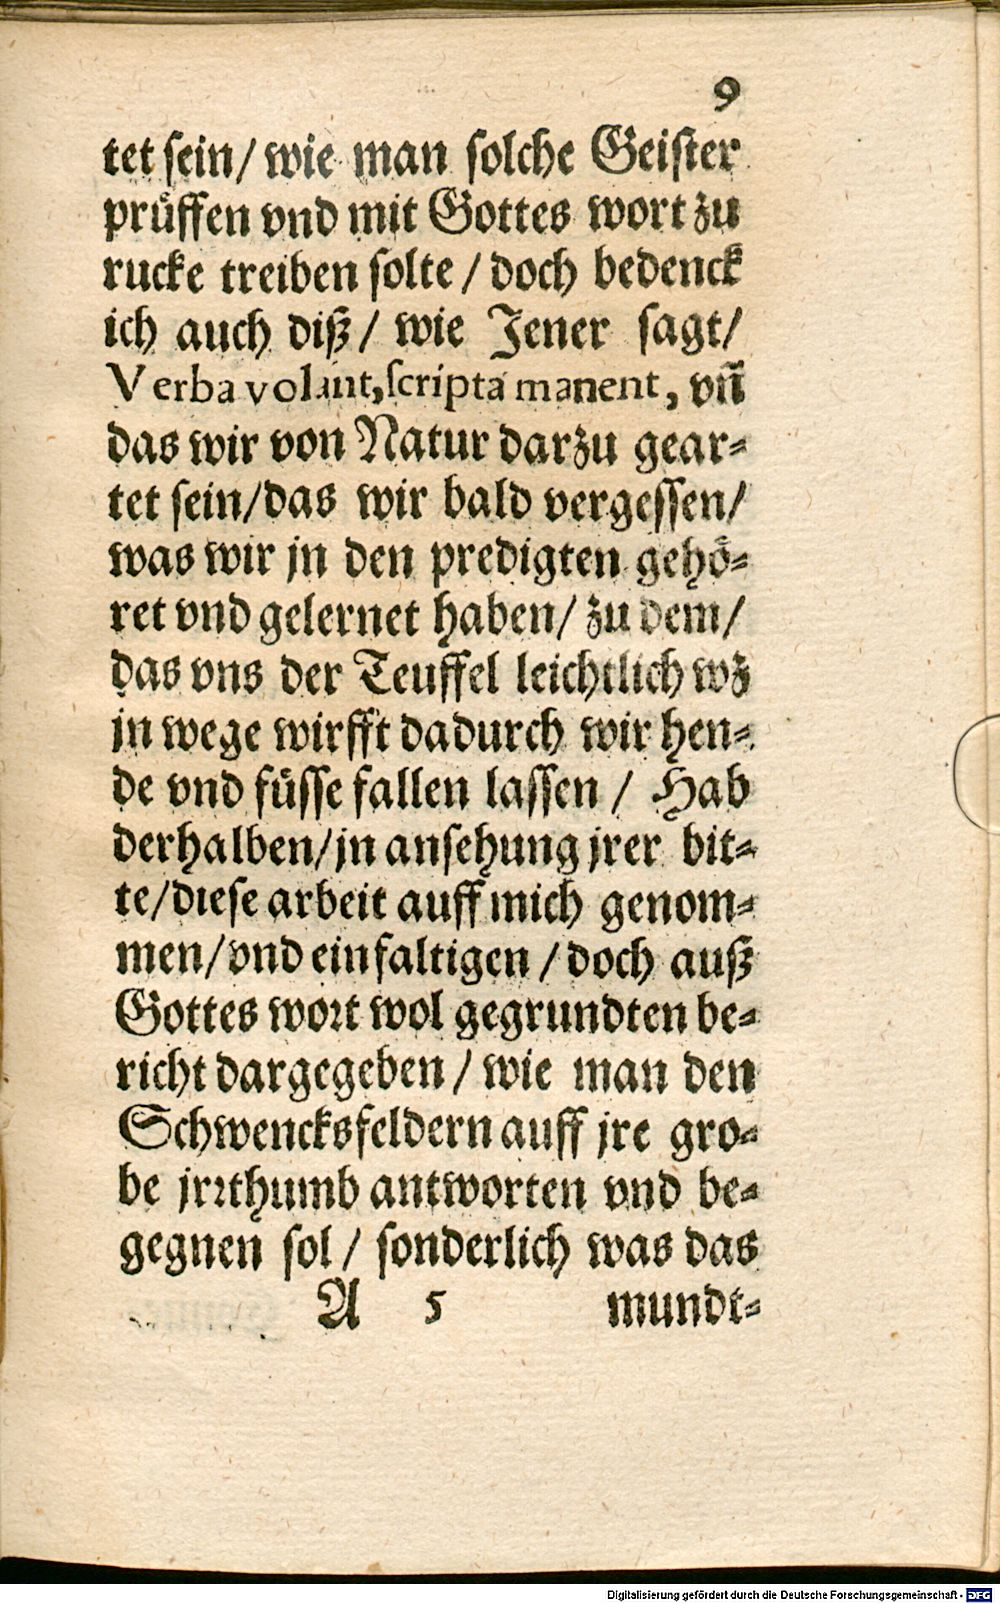 9
tet sein/ wie man solche Geister
prüffen vnd mit Gottes wort zu
rucke treiben solte / doch bedenck
ich auch diß / wie Jener sagt/
Verba volant, scripta manent, vn̄
das wir von Natur darzu gear-
tet sein/das wir bald vergessen/
was wir jn den predigten gehö-
ret vnd gelernet haben/ zu dem/
das vns der Teuffel leichtlich wz
jn wege wirfft dadurch wir hen-
de vnd füsse fallen lassen / Hab
derhalben/jn ansehung jrer bit-
te/diese arbeit auff mich genom-
men/vnd einfaltigen / doch auß
Gottes wort wol gegrundten be-
richt dargegeben / wie man den
Schwencksfeldern auff jre gro-
be jrrthumb antworten vnd be-
gegnen sol / sonderlich was das
A 5 mundt-
Digitalisierung gefördert durch die Deutsche Forschungsgemeinschaft - DFG